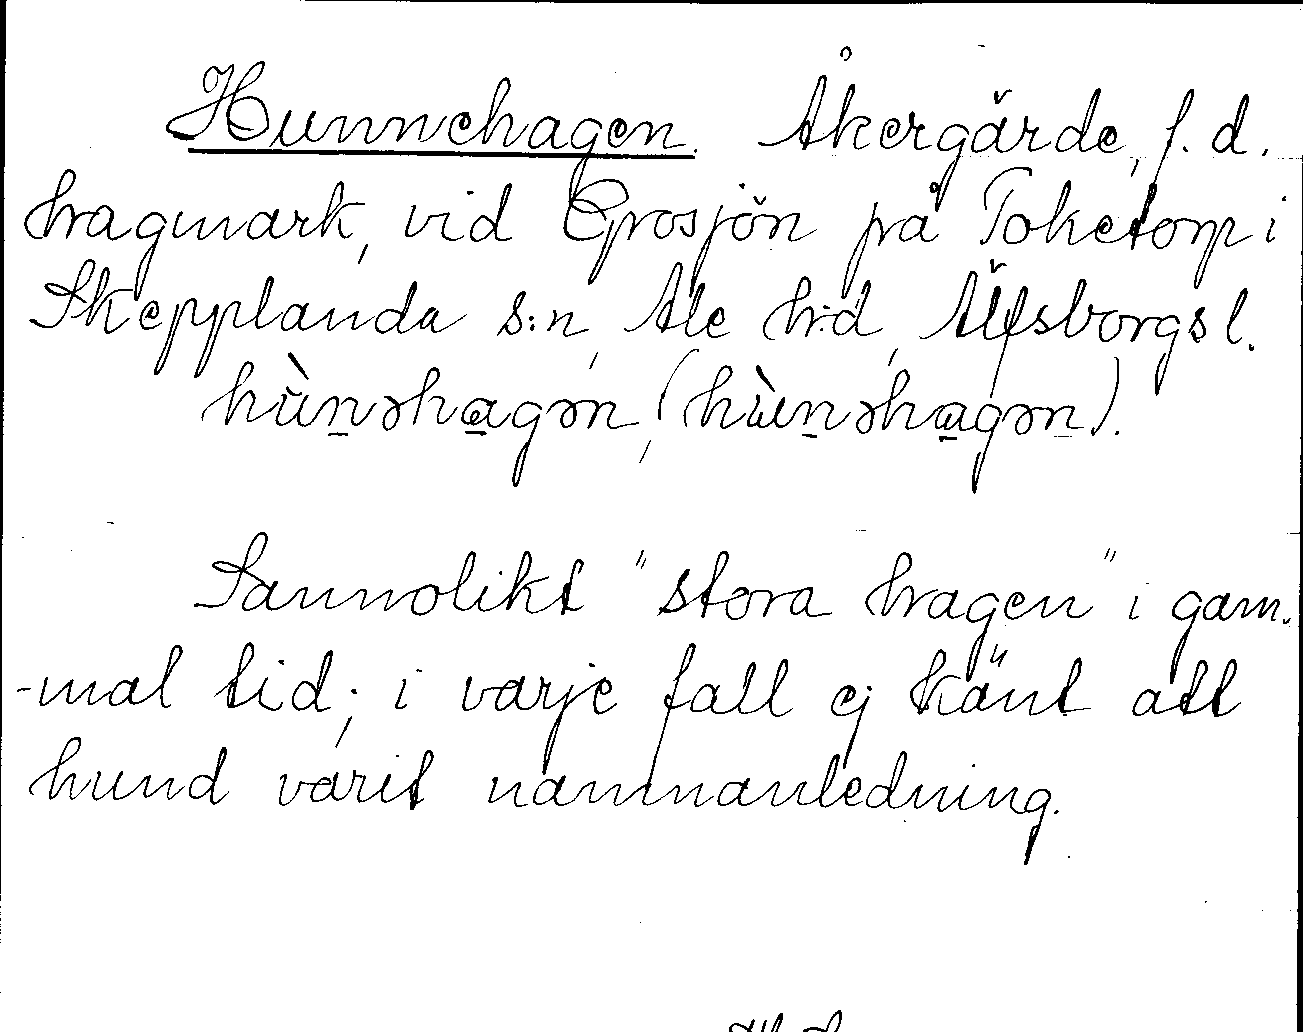 Hunnehagen. Åkergärde, f. d.
hagmark, vid Grosjön på Toketorp i
Skepplanda s:n, Ale h:d, Älfsborgs l.
hùnəhagən, (hùnəhagən).
Sannolikt "stora hagen" i gam-
-mal tid; i varje fall ej känt att
hund varit namnanledning.